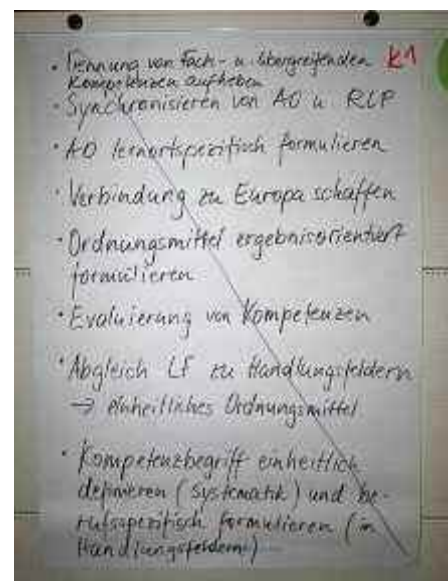 · Trennung von Fach- u. übergreifenden K1
Kompetenzen aufheben
· Synchronisieren von AO u RLP
· AO lernortspezifisch formulieren
· Verbindung zu Europa schaffen
· Ordnungsmittel ergebnisorientiert
formulieren
· Evaluierung von Kompetenzen
· Abgleich LF zu Handlungsfeldern
→ einheitliches Ordnungsmittel
· Kompetenzbegriff einheitlich
definieren (Systematik) und be-
rufsspezifisch formulieren (in
Handlungsfeldern)